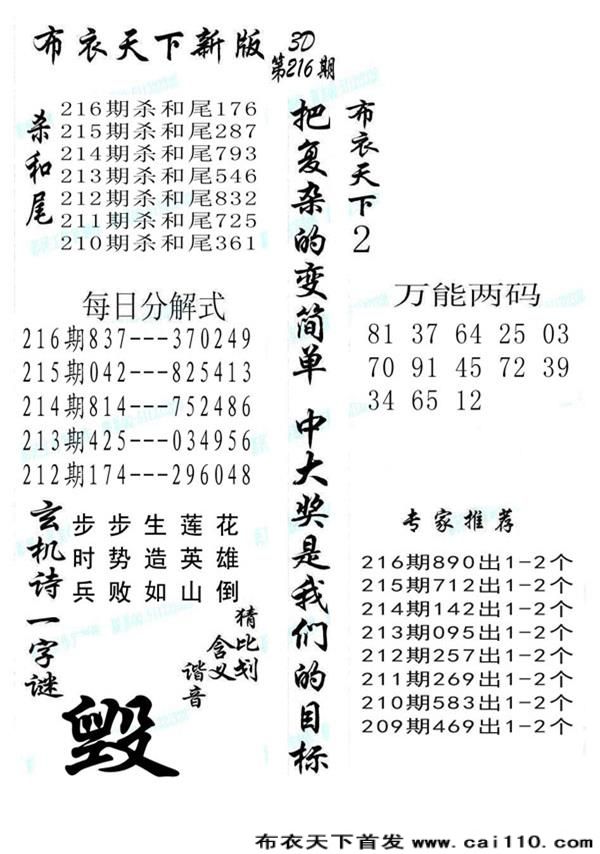 布衣天下新版
3D
第216期
杀和尾
216期杀和尾176
215期杀和尾287
214期杀和尾793
213期杀和尾546
212期杀和尾832
211期杀和尾725
210期杀和尾361
每日分解式
216期837---370249
215期042---825413
214期814---752486
213期425---034956
212期174---296048
玄机诗
步步生莲花
时势造英雄
兵败如山倒
一字谜
猜比划
含义
谐音
毁
把复杂的变简单 中大奖是我们的目标
布衣天下2
万能两码
81 37 64 25 03
70 91 45 72 39
34 65 12
专家推荐
216期890出1-2个
215期712出1-2个
214期142出1-2个
213期095出1-2个
212期257出1-2个
211期269出1-2个
210期583出1-2个
209期469出1-2个
布衣天下首发 www.cai110.com